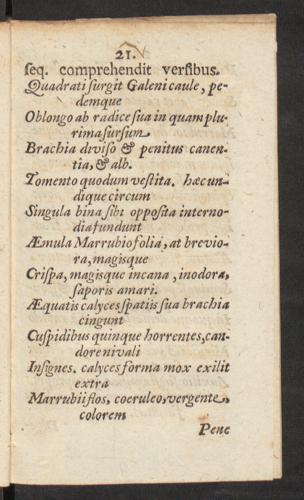 21.
ſeq. comprehendit verſibus.
Quadrati ſurgit Galeni caule, pe-
demque
Oblongo ab radice ſua in quamplu-
rima ſurſum
Brachia diviſo & penitus canen-
tia, & alb.
Tomento quodum veſtita. hæc un-
dique circum
Singula bina ſibi oppoſita interno-
dia fundunt
Æmula Marrubio folia, at brevio-
ra, magisque
Criſpa, magisque incana, inodora,
ſaporis amari.
Æquatis calyces ſpatiis ſua brachia
cingunt
Cuſpidibus quinque horrentes, can-
dore nivali
Inſignes. calyces forma mox exilit
extra
Marrubii flos, coeruleo, vergente,
colorem
Pene